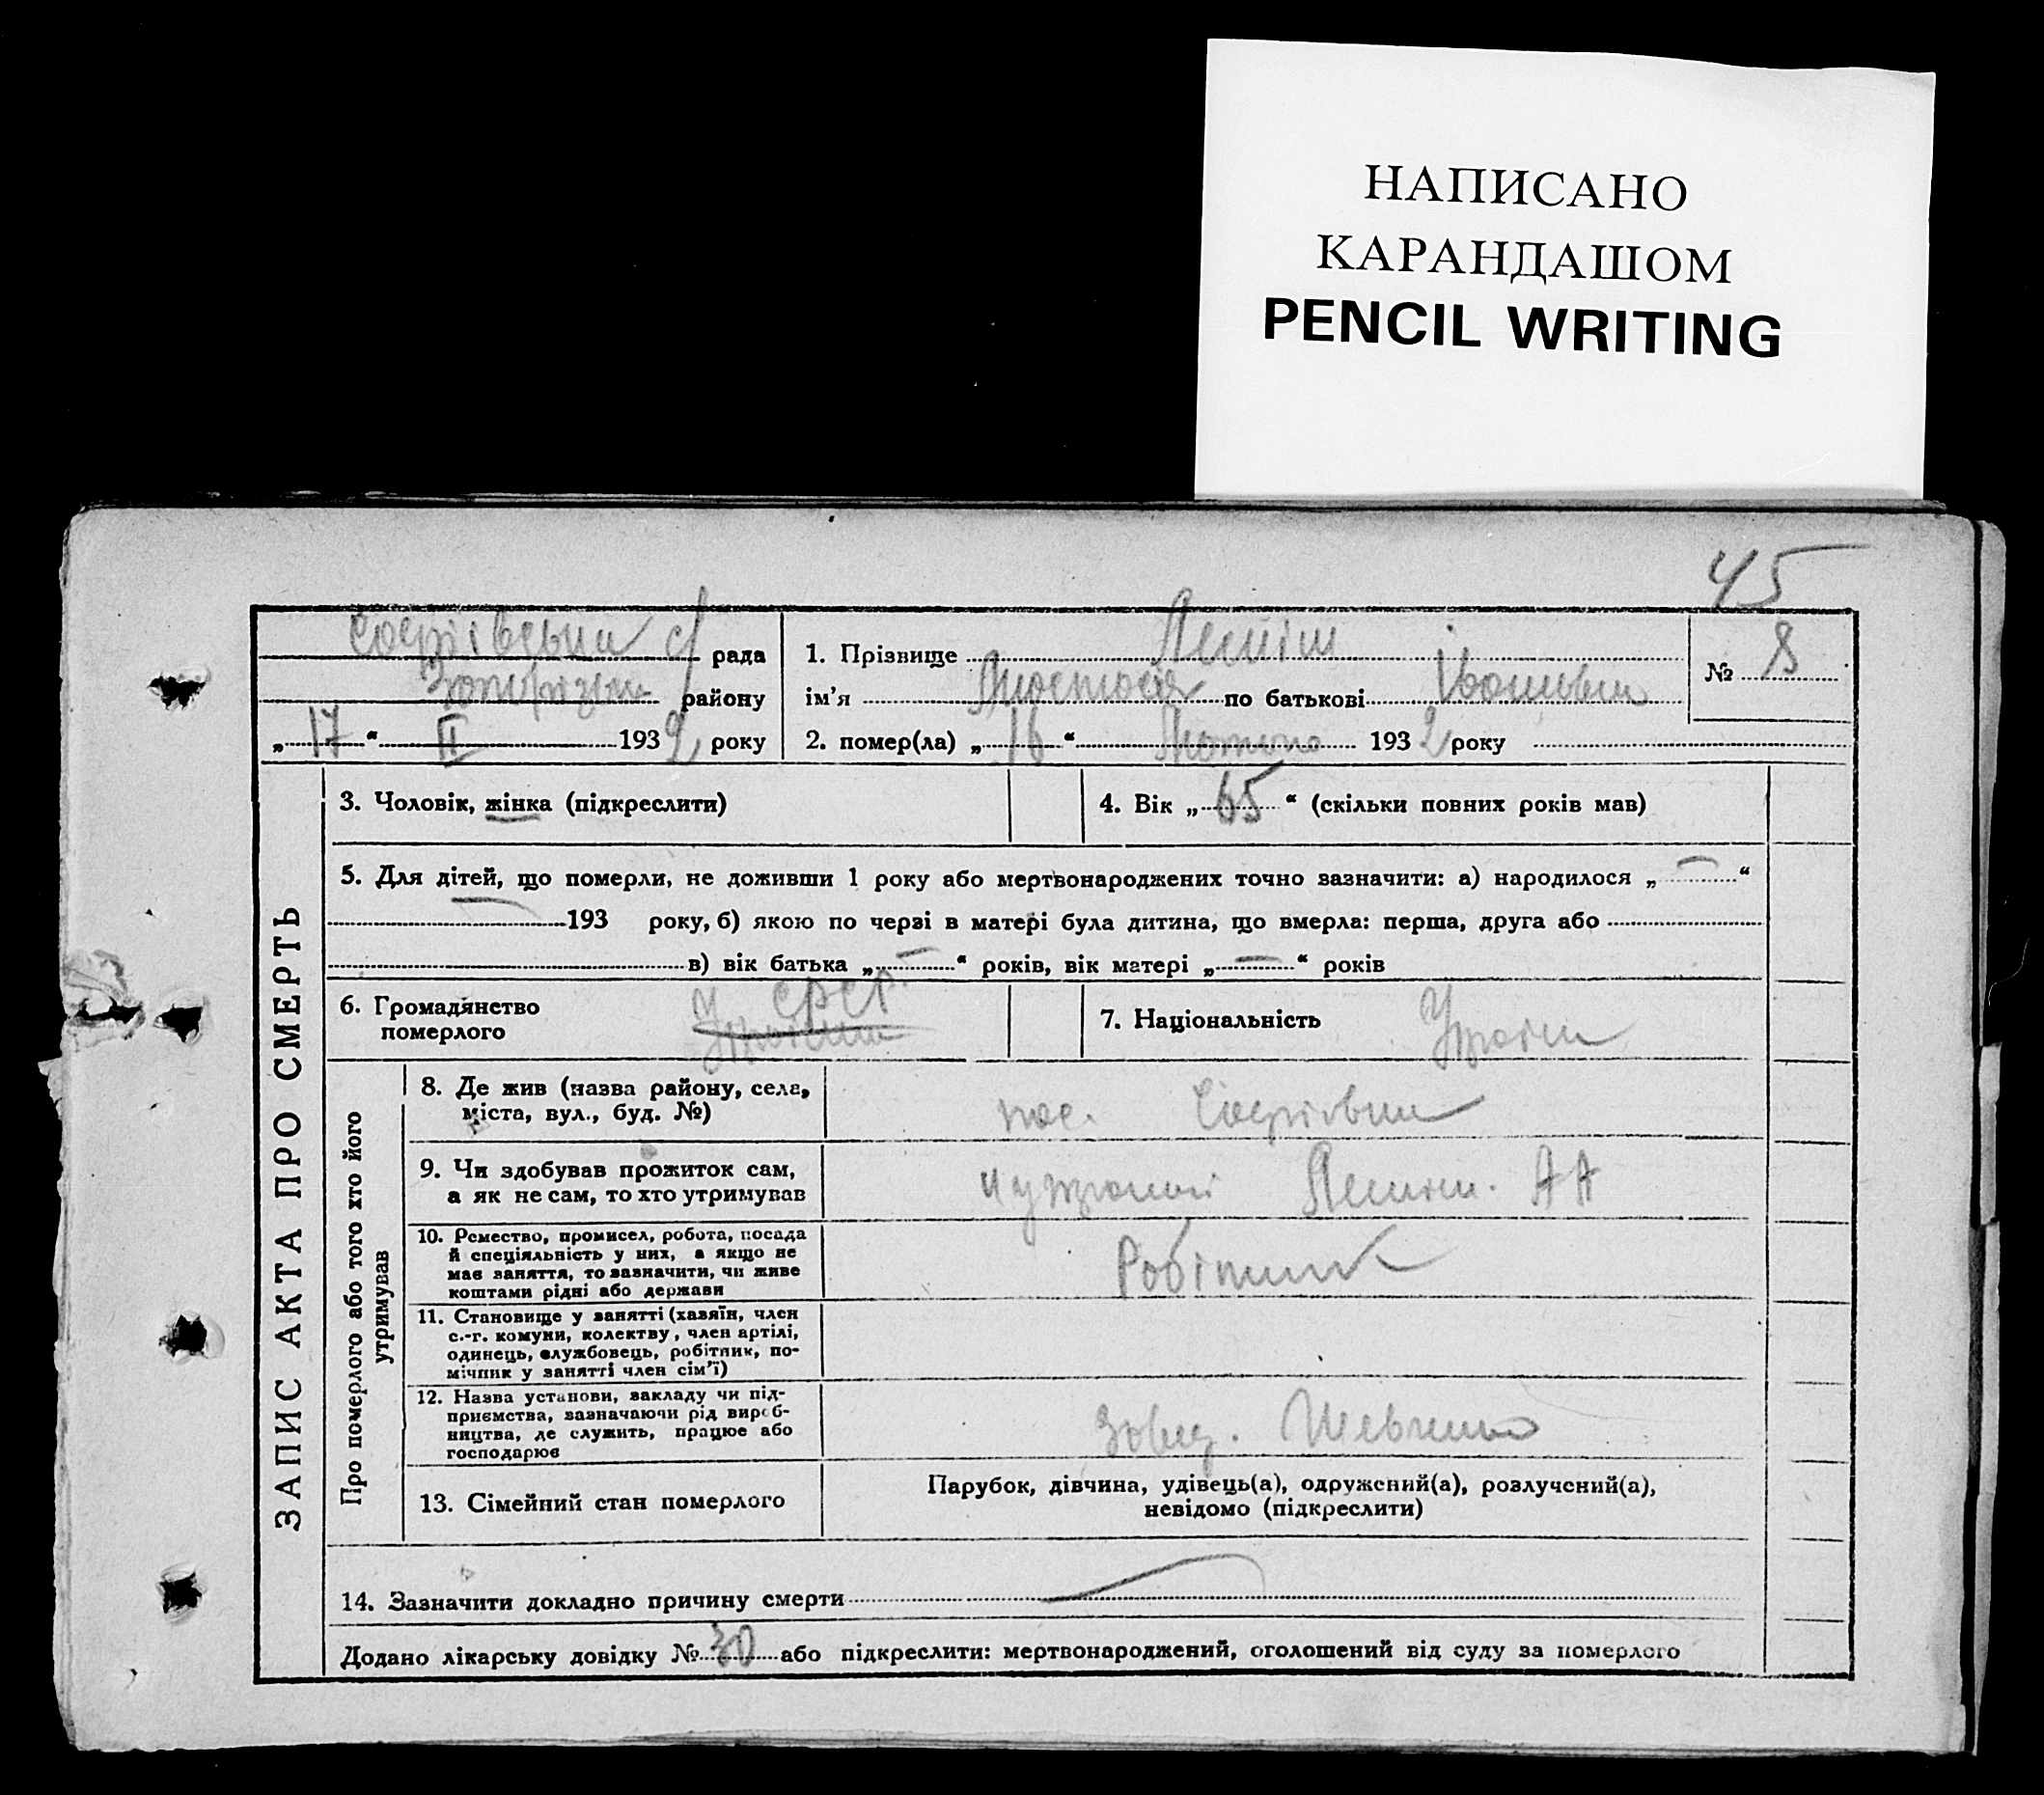 НАПИСАНО
КАРАНДАШОМ
PENCIL WRITING
45
Софіївська с/ рада
Запорізьк району
„17“ II 1932 року
1. Прізвище
№ 8
ім’я по батькові Іванівна
2. помер(ла) „16“ Лютого 1932 року
ЗАПИС АКТА ПРО СМЕРТЬ
3. Чоловік, жінка (підкреслити)
4. Вік „65“ (скільки повних років мав)
5. Для дітей, що померли, не доживши 1 року або мертвонароджених точно зазначити: а) народилося „—“
— 193 року, б) якою по черзі в матері була дитина, що вмерла: перша, друга або
в) вік батька „—“ років, вік матері „—“ років
6. Громадянство
померлого
УСРСР.
7. Національність
Україн
Про померлого або того хто його
утримував
8. Де жив (назва району, села,
міста, вул., буд. №)
пос. Софіївка
9. Чи здобував прожиток сам,
а як не сам, то хто утримував
А А
10. Ремество, промисел, робота, посада
й спеціяльність у них, а якщо не
має заняття, то зазначити, чи живе
коштами рідні або держави
Робітник
11. Становище у занятті (хазяїн, член
с.-г. комуни, колектву, член артілі,
одинець, службовець, робітник, по-
мічник у занятті член сім’ї)
12. Назва установи, закладу чи під-
приємства, зазначаючи рід вироб-
ництва, де служить, працює або
господарює
Шевченко
13. Сімейний стан померлого
Парубок, дівчина, удівець(а), одружений(а), розлучений(а),
невідомо (підкреслити)
14. Зазначити докладно причину смерти —
Додано лікарську довідку № 30 або підкреслити: мертвонароджений, оголошений від суду за померлого